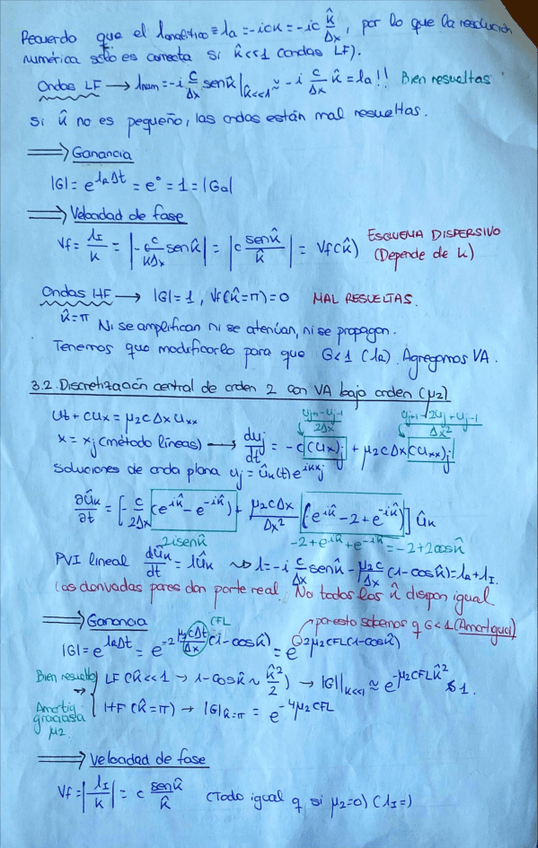 Recuerdo que el lanalítico ≡ la = -ick = -ic k̂/Δx, por lo que la resolución
numérica sólo es correcta si k̂<<1 (ondas LF).
Ondas LF → lnum = -i c/Δx sen k̂ |k̂<<1 ≈ -i c/Δx k̂ = la!! Bien resueltas
Si k̂ no es pequeño, las ondas están mal resueltas.
⟹ Ganancia
|G| = e^{laΔt} = e^0 = 1 = |Ga|
⟹ Velocidad de fase
Vf = lI/k = |-c/(kΔx) sen k̂| = |c sen k̂/k̂| = Vf(k̂) ESQUEMA DISPERSIVO
(Depende de k)
Ondas HF → |G|=1, Vf(k̂=π)=0 MAL RESUELTAS.
k̂=π Ni se amplifican ni se atenúan, ni se propagan.
Tenemos que modificarlo para que G<1 (la). Agregamos VA.
3.2. Discretización central de orden 2 con VA bajo orden (μ2)
ut + cux = μ2cΔx uxx
(uj+1 - uj-1)/2Δx (uj+1 - 2uj + uj-1)/Δx²
x = xj (método líneas) → duj/dt = -c(ux)j + μ2cΔx(uxx)j
Soluciones de onda plana uj = ûk(t)e^{ikxj}
∂ûk/∂t = [-c/2Δx (e^{ik̂} - e^{-ik̂}) + μ2cΔx/Δx² (e^{ik̂} - 2 + e^{-ik̂})] ûk
2i sen k̂ -2 + e^{ik̂} + e^{-ik̂} = -2+2cos k̂
PVI lineal dûk/dt = lûk ⇝ l = -i c/Δx sen k̂ - μ2c/Δx (1-cos k̂) = la + lI.
Las derivadas pares dan parte real. No todos los k̂ disipan igual
⟹ Ganancia CFL por esto sabemos q G<1 (Amortigua)
|G| = e^{laΔt} = e^{-2 μ2cΔt/Δx (1-cos k̂)} = e^{-2μ2CFL(1-cos k̂)}
Bien resuelto LF (k̂<<1 → 1-cos k̂ ~ k̂²/2) → |G||k<<1 ≈ e^{-μ2CFL k̂²} ≲ 1.
Amortig gracias a μ2 HF (k̂=π) → |G|k̂=π = e^{-4μ2CFL}
⟹ Velocidad de fase
Vf = |lI/k| = c sen k̂/k̂ (Todo igual q si μ2=0) (lI=)